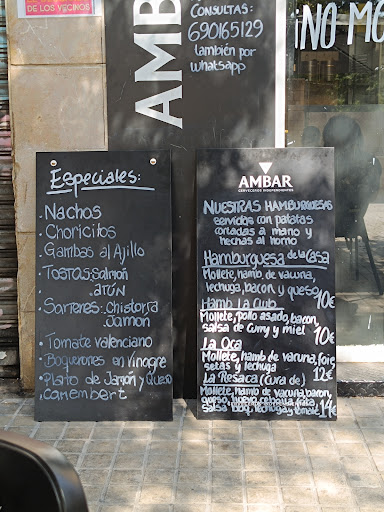 DE LOS VECINOS
CONSULTAS:
690165129
también por
whatsapp
AMB
¡NO MO
Especiales:
· Nachos
· Choricitos
· Gambas al Ajillo
· TOSTAS: Salmón
. ATÚN
· Sartenes: Chistorra
. Jamon
· Tomate valenciano
· Boquerones en Vinagre
· Plato de Jamón y Queso
· Camembert
AMBAR
CERVECEROS INDEPENDIENTES
NUESTRAS HAMBURGUESAS
servidas con patatas
cortadas a mano y
hechas al horno
Hamburguesa de la Casa
Mollete, hamb, de vacuna,
lechuga, bacon y queso 10€
Hamb La Club
Mollete, pollo asado, bacon,
salsa de curry y miel 10€
La Oca
Mollete, hamb de vacuna, foie
setas y lechuga 12€
La Resaca (Cura de)
Mollete, hamb de vacuna, bacon,
queso, huevo, cebolla
salsa bbq, lechuga y tomate 14€